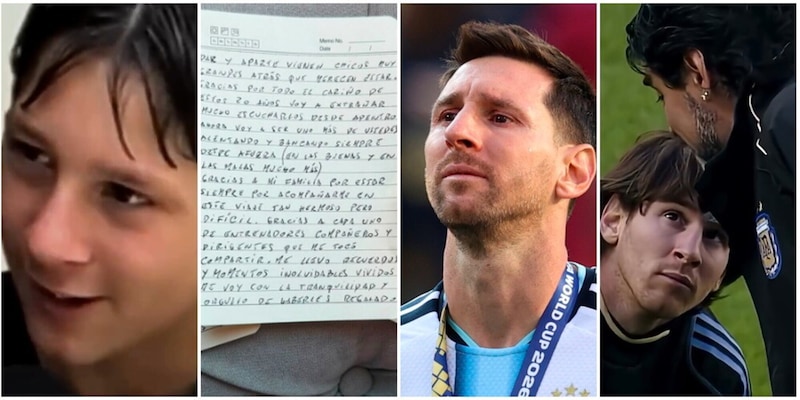 Memo No.
Date / /
DAR Y APARTE VIENEN CHICOS MUY
GRANDES ATRÁS QUE MERECEN ESTAR.
GRACIAS POR TODO EL CARIÑO DE
ESTOS 20 AÑOS VOY A EXTRAÑAR
MUCHO ESCUCHARLOS DESDE ADENTRO.
AHORA VOY A SER UNO MÁS DE USTEDES
ALENTANDO Y BANCANDO SIEMPRE
DESDE AFUERA (EN LAS BUENAS Y EN
LAS MALAS MUCHO MÁS)
GRACIAS A MI FAMILIA POR ESTAR
SIEMPRE POR ACOMPAÑARME EN
ESTE VIAJE TAN HERMOSO PERO
DIFÍCIL. GRACIAS A CADA UNO
DE ENTRENADORES COMPAÑEROS Y
DIRIGENTES QUE ME TOCÓ
COMPARTIR. ME LLEVO RECUERDOS
Y MOMENTOS INOLVIDABLES VIVIDOS.
ME VOY CON LA TRANQUILIDAD Y
ORGULLO DE HABERLES REGALADO
WORLD CUP 2026